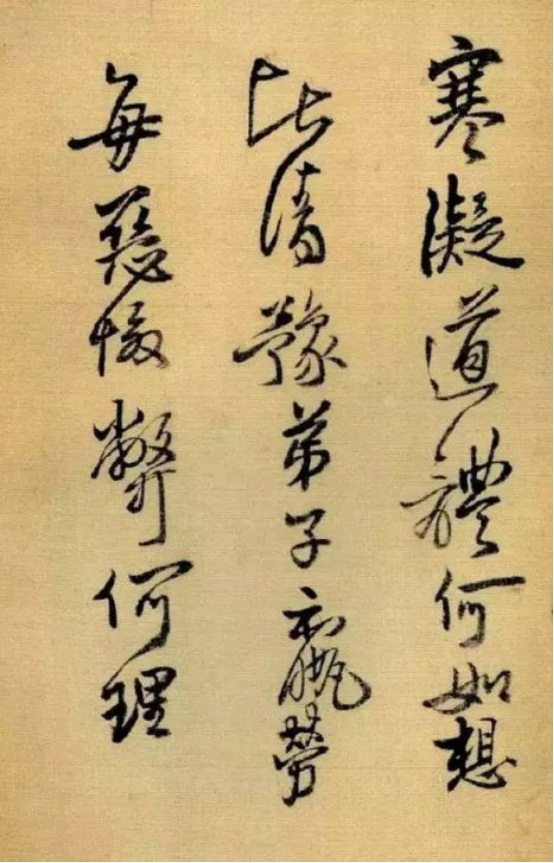 寒凝道體何如想
比清豫弟子羸勞
每惡弊何理